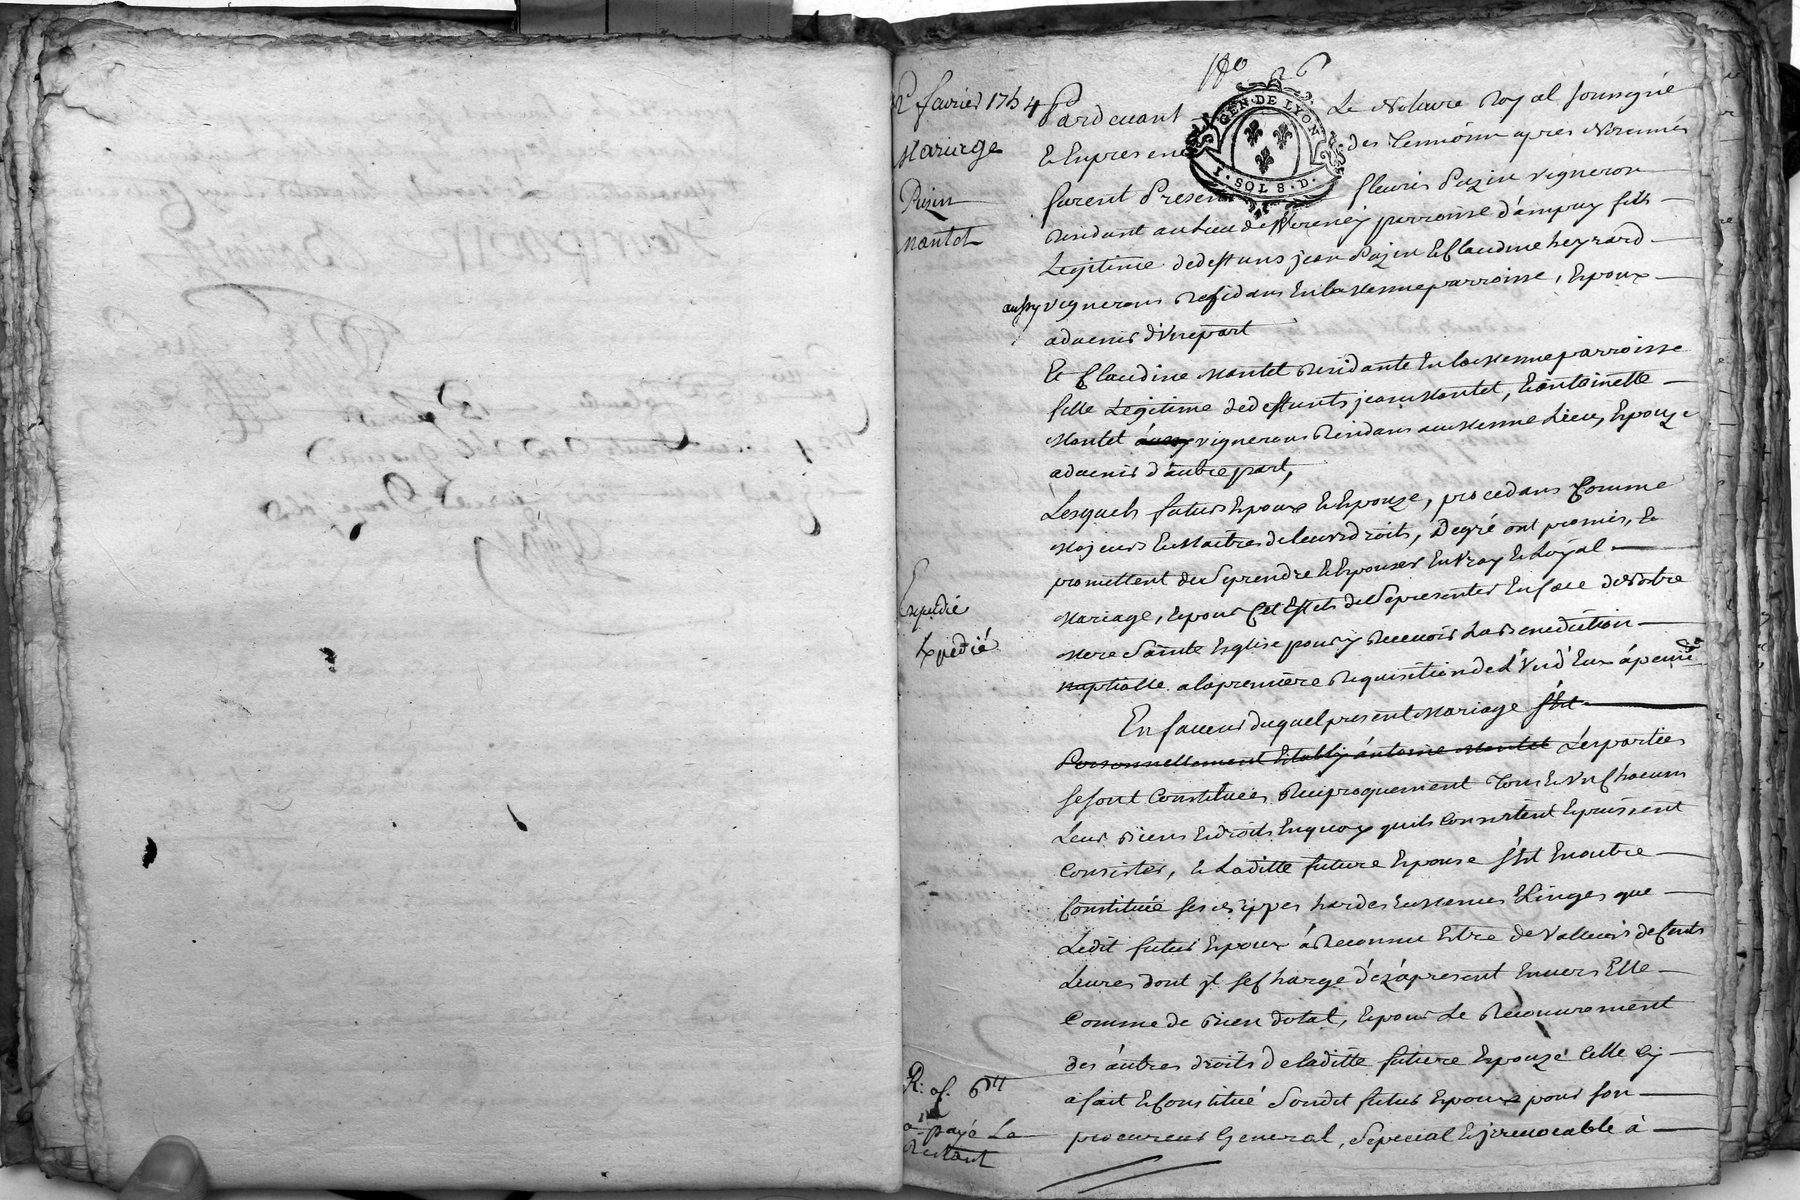 2 favrier 1754
Mariage
Pazin
Mantet
Expedié
Expedié
R. 6tt
a payé Le
Restant
GEN·DE LYON
1·SOL 8·D·
Pardevant Le Notaire Royal soussigné
et En presence des Temoins apres Nommés
furent Present fleuris Pazin vigneron
Residant au Lieu de Vereney parroisse d'ampuy fils
Legitime de deffunts jean Pazin et Claudine heyrard
aussy vignerons Residans En la Mesme parroisse, Epoux
advenir d'Une part
Et Claudine Mantet Residante En la Mesme parroisse
fille Legitime de deffunts jean Mantet, et antoinette
Mantet aussy vignerons Residans au Mesme Lieu, Epouze
advenir d'autre part,
Lesquels futurs Epoux et Epouze, procedans Comme
Majeurs et Maitres de leurs droits, Degré ont promis, et
promettent de Se prendre et Epouser En Vray et Loyal
Mariage, et pour Cet Effet de Se presenter En face de Nostre
Mere Sainte Eglise pour y Recevoir La Benediction
nuptialle a la premiere Requisition de L'Un d'Eux á peine
En faveur duquel present Mariage s'est
Personnellement Etably antoine Mantet Les parties
se sont Constituées Reciproquement Tous et Un Chacuns
Leurs Biens et droits En quoy quils Consistent et puissent
Consister, et Laditte future Epouse s'est En outre
Constituée ses Nippes hardes et Linges que
Ledit futur Epoux á Reconnu Estre de Valleur de Cents
Livres dont jl se Charge déz á present Envers Elle
Comme de Bien dotal, et pour Le Recouvrement
des áutres droits de laditte future Epouze Celle Cy
a fait et Constitué Sondit futur Epoux pour son
procureur General, Special et jrrevocable á